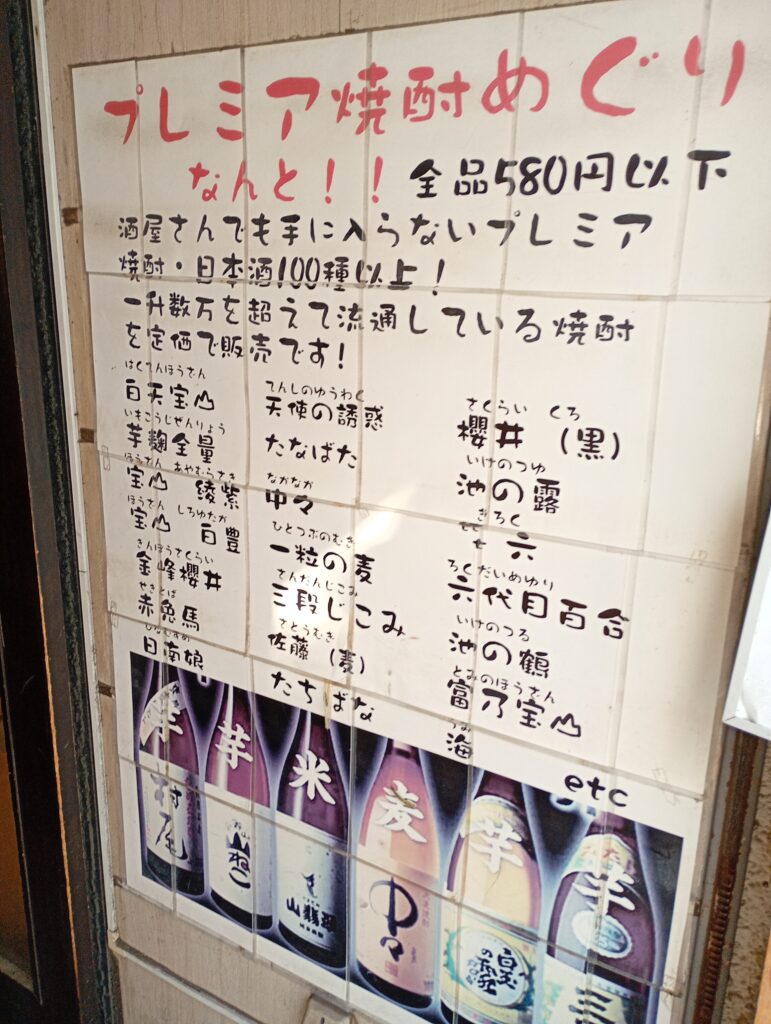 プレミア焼酎めぐり
なんと！！全品580円以下
酒屋さんでも手に入らないプレミア
焼酎・日本酒100種以上！
一升数万を超えて流通している焼酎
を定価で販売です！
はくてんほうざん
白天宝山
いもこうじぜんりょう
芋麹全量
ほうざん あやむらさき
宝山 綾紫
ほうざん しろゆたか
宝山 白豊
きんぽうさくらい
金峰櫻井
せきとば
赤兎馬
ひなむすめ
日南娘
てんしのゆうわく
天使の誘惑
たなばた
なかなか
中々
ひとつぶのむぎ
一粒の麦
さんだんじこみ
三段じこみ
さとうむぎ
佐藤(麦)
たちばな
さくらい くろ
櫻井(黒)
いけのつゆ
池の露
きろく
㐂六
ろくだいめゆり
六代目百合
いけのつる
池の鶴
とみのほうざん
富乃宝山
うみ
海
etc
芋 芋 米 麦 芋 芋
村尾
山ねこ
中々